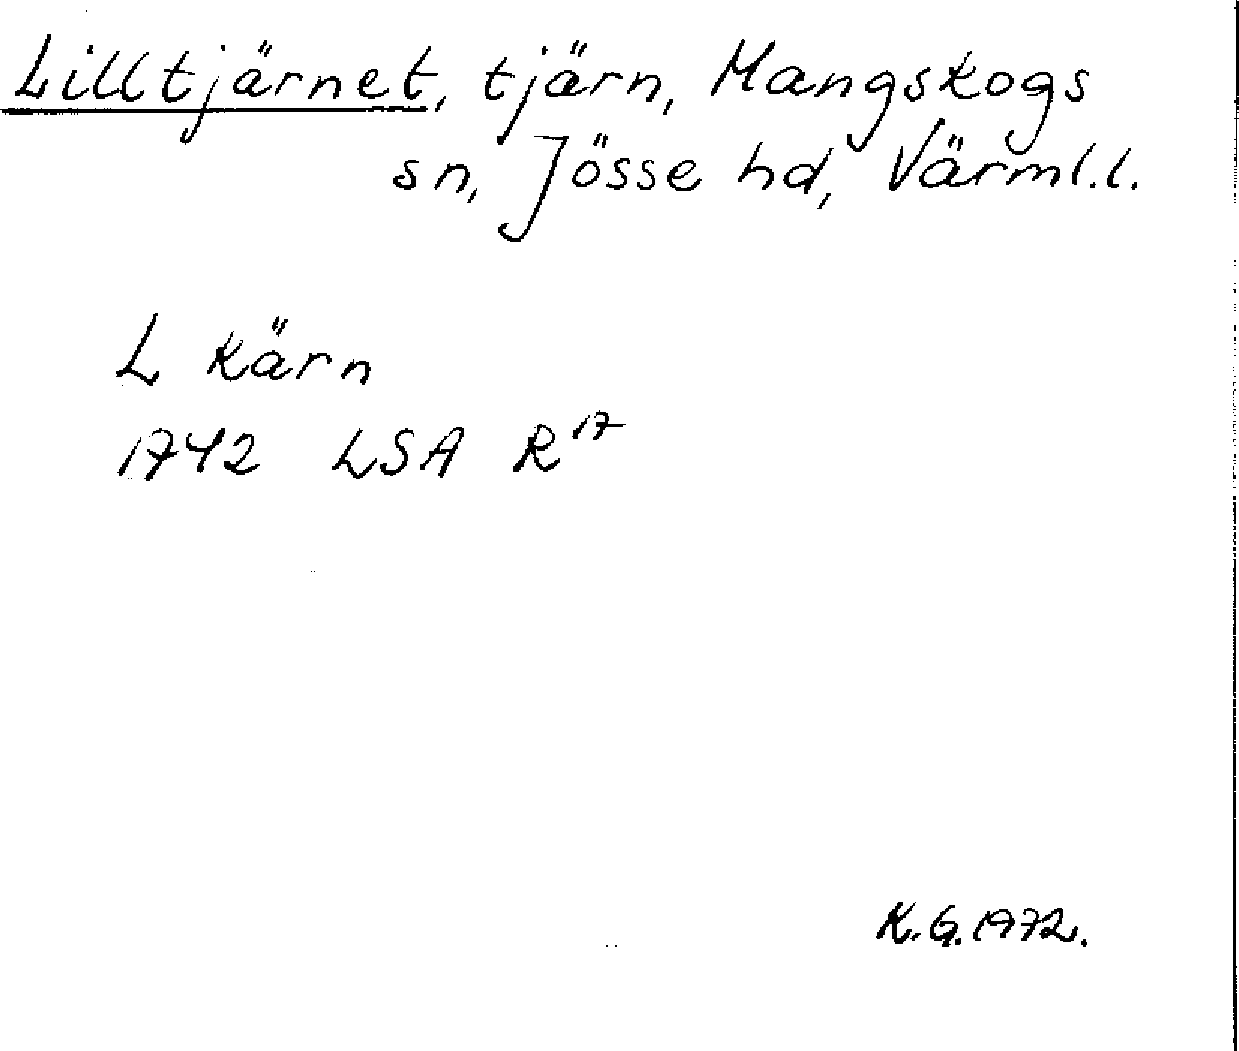 Lilltjärnet, tjärn, Mangskogs
sn, Jösse hd, Värml.l.
L Kärn
1742 LSA R 17
K.G.1972.